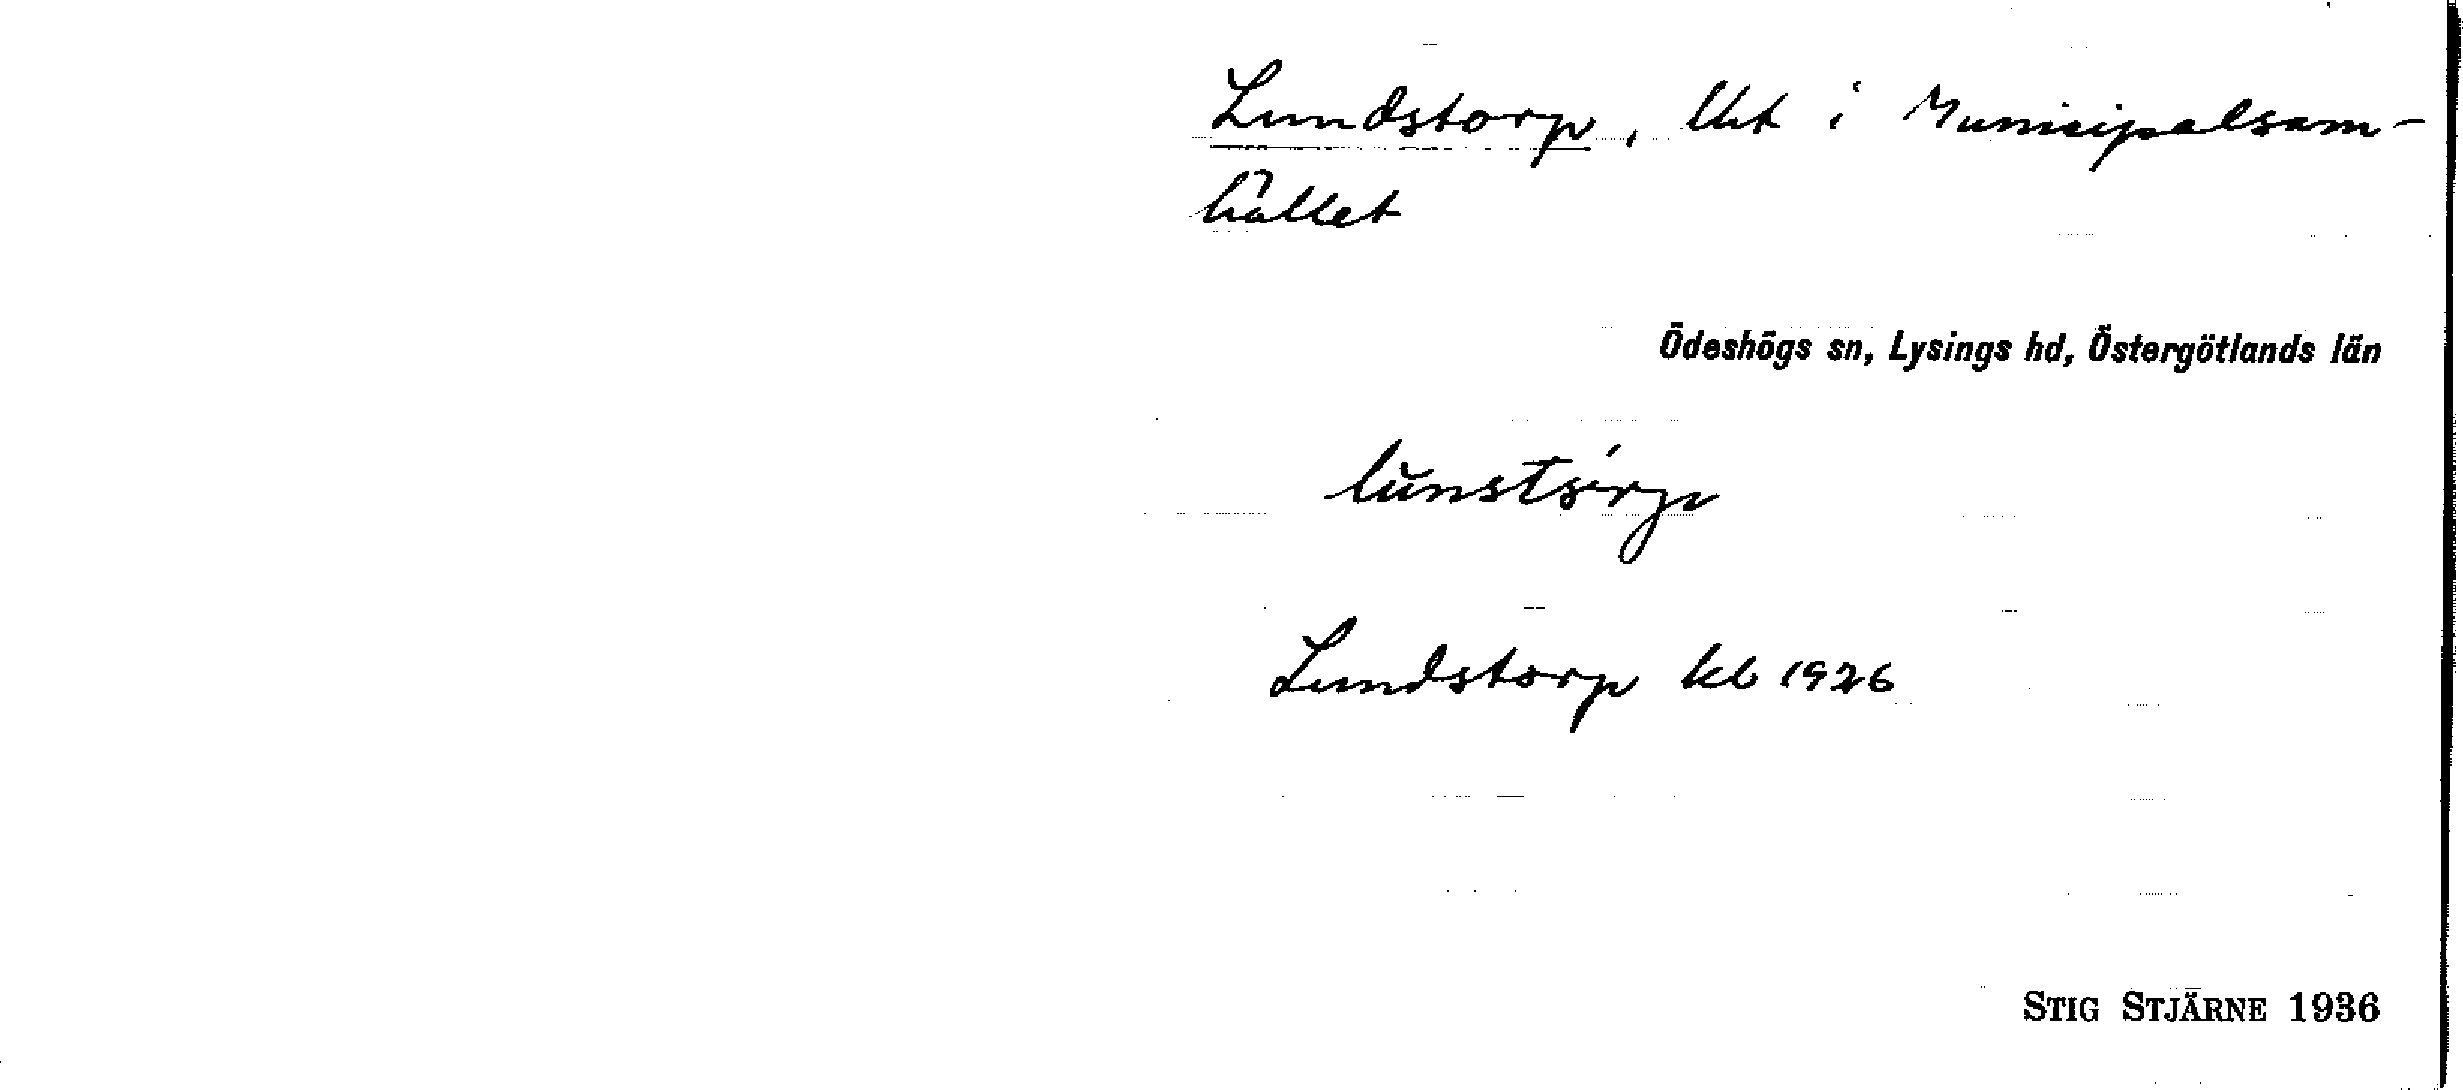 Lundstorp, lht i Municipalsam-
hället
Ödeshögs sn, Lysings hd, Östergötlands län
Lundstorp kb 1926
STIG STJÄRNE 1936